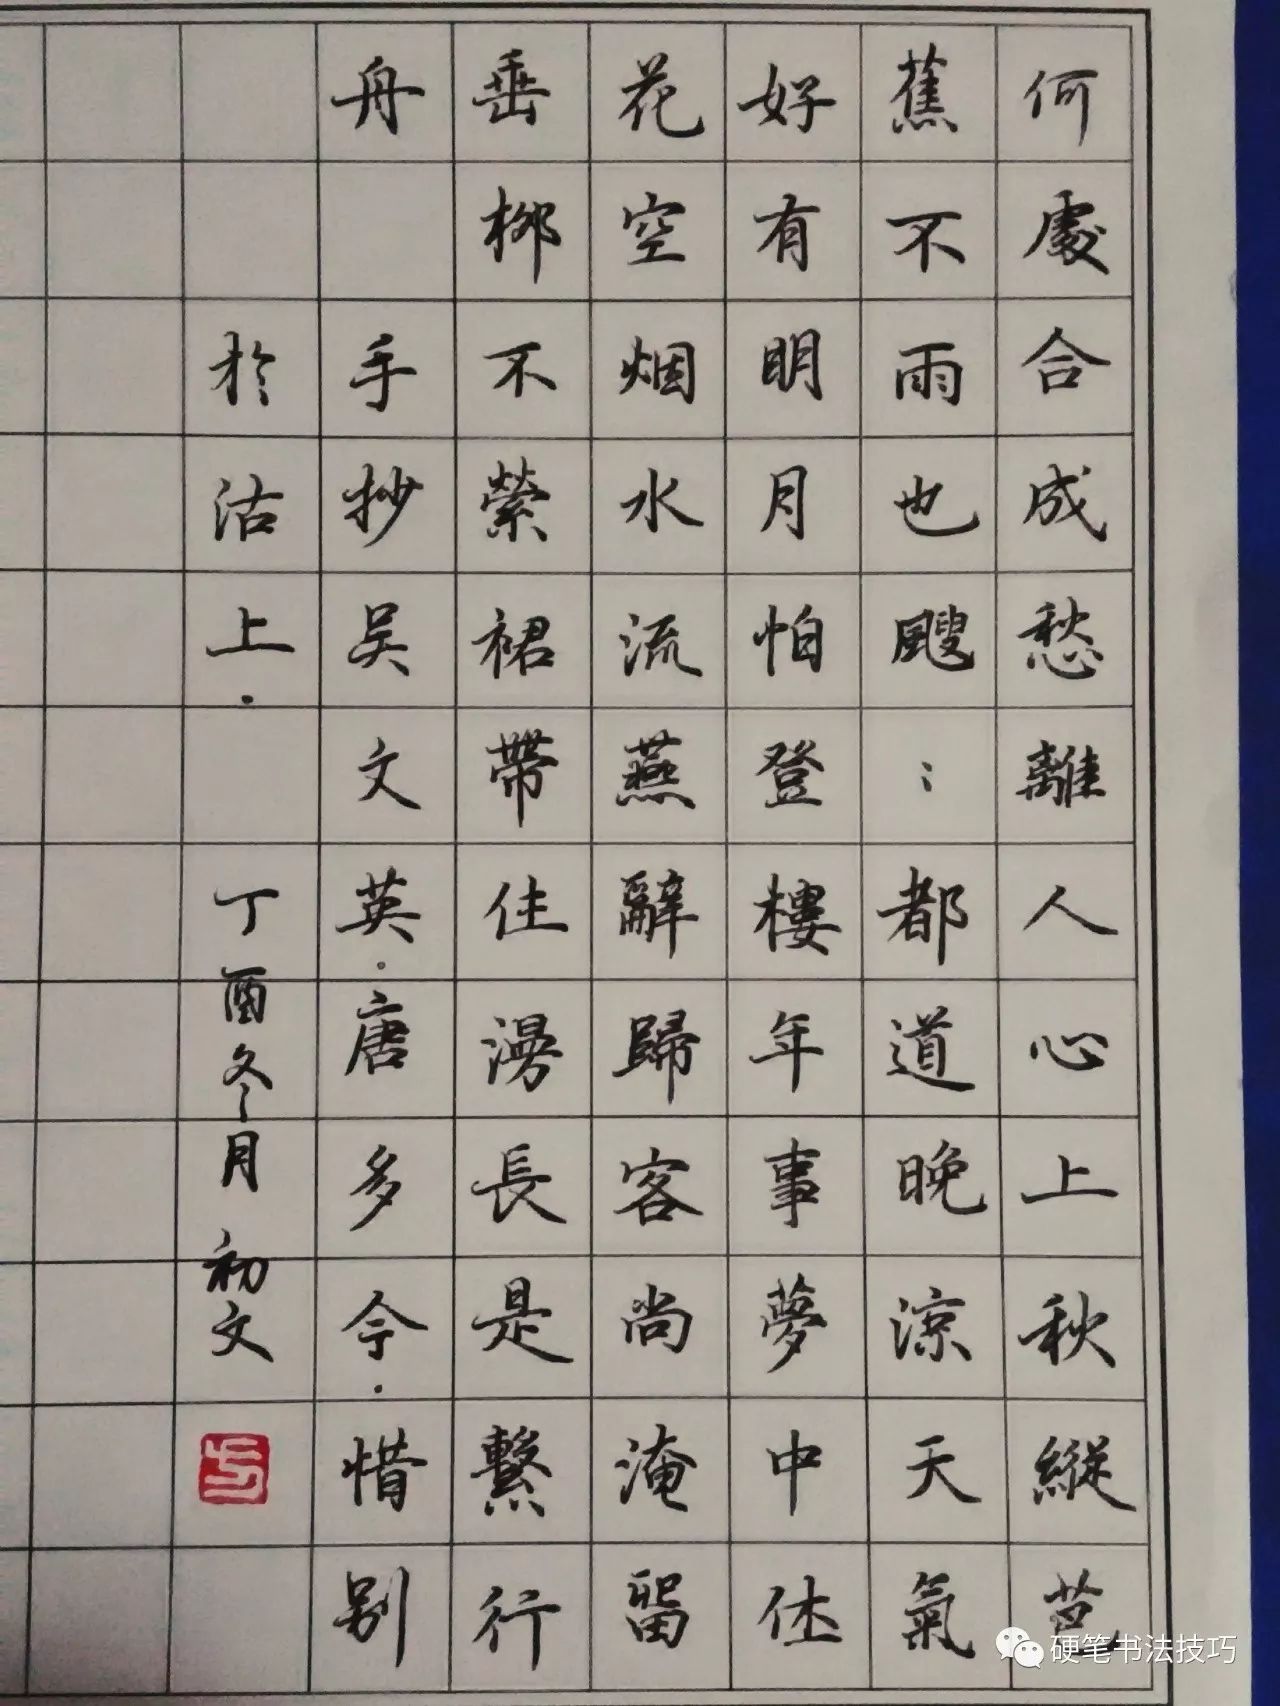 何處合成愁離人心上秋縱芭
蕉不雨也颼：都道晚涼天氣
好有明月怕登樓年事夢中休
花空烟水流燕辭歸客尚淹留
垂柳不縈裙帶住漫長是繫行
舟手抄吴文英·唐多令·惜别
於沽上·丁酉冬月初文
硬笔书法技巧